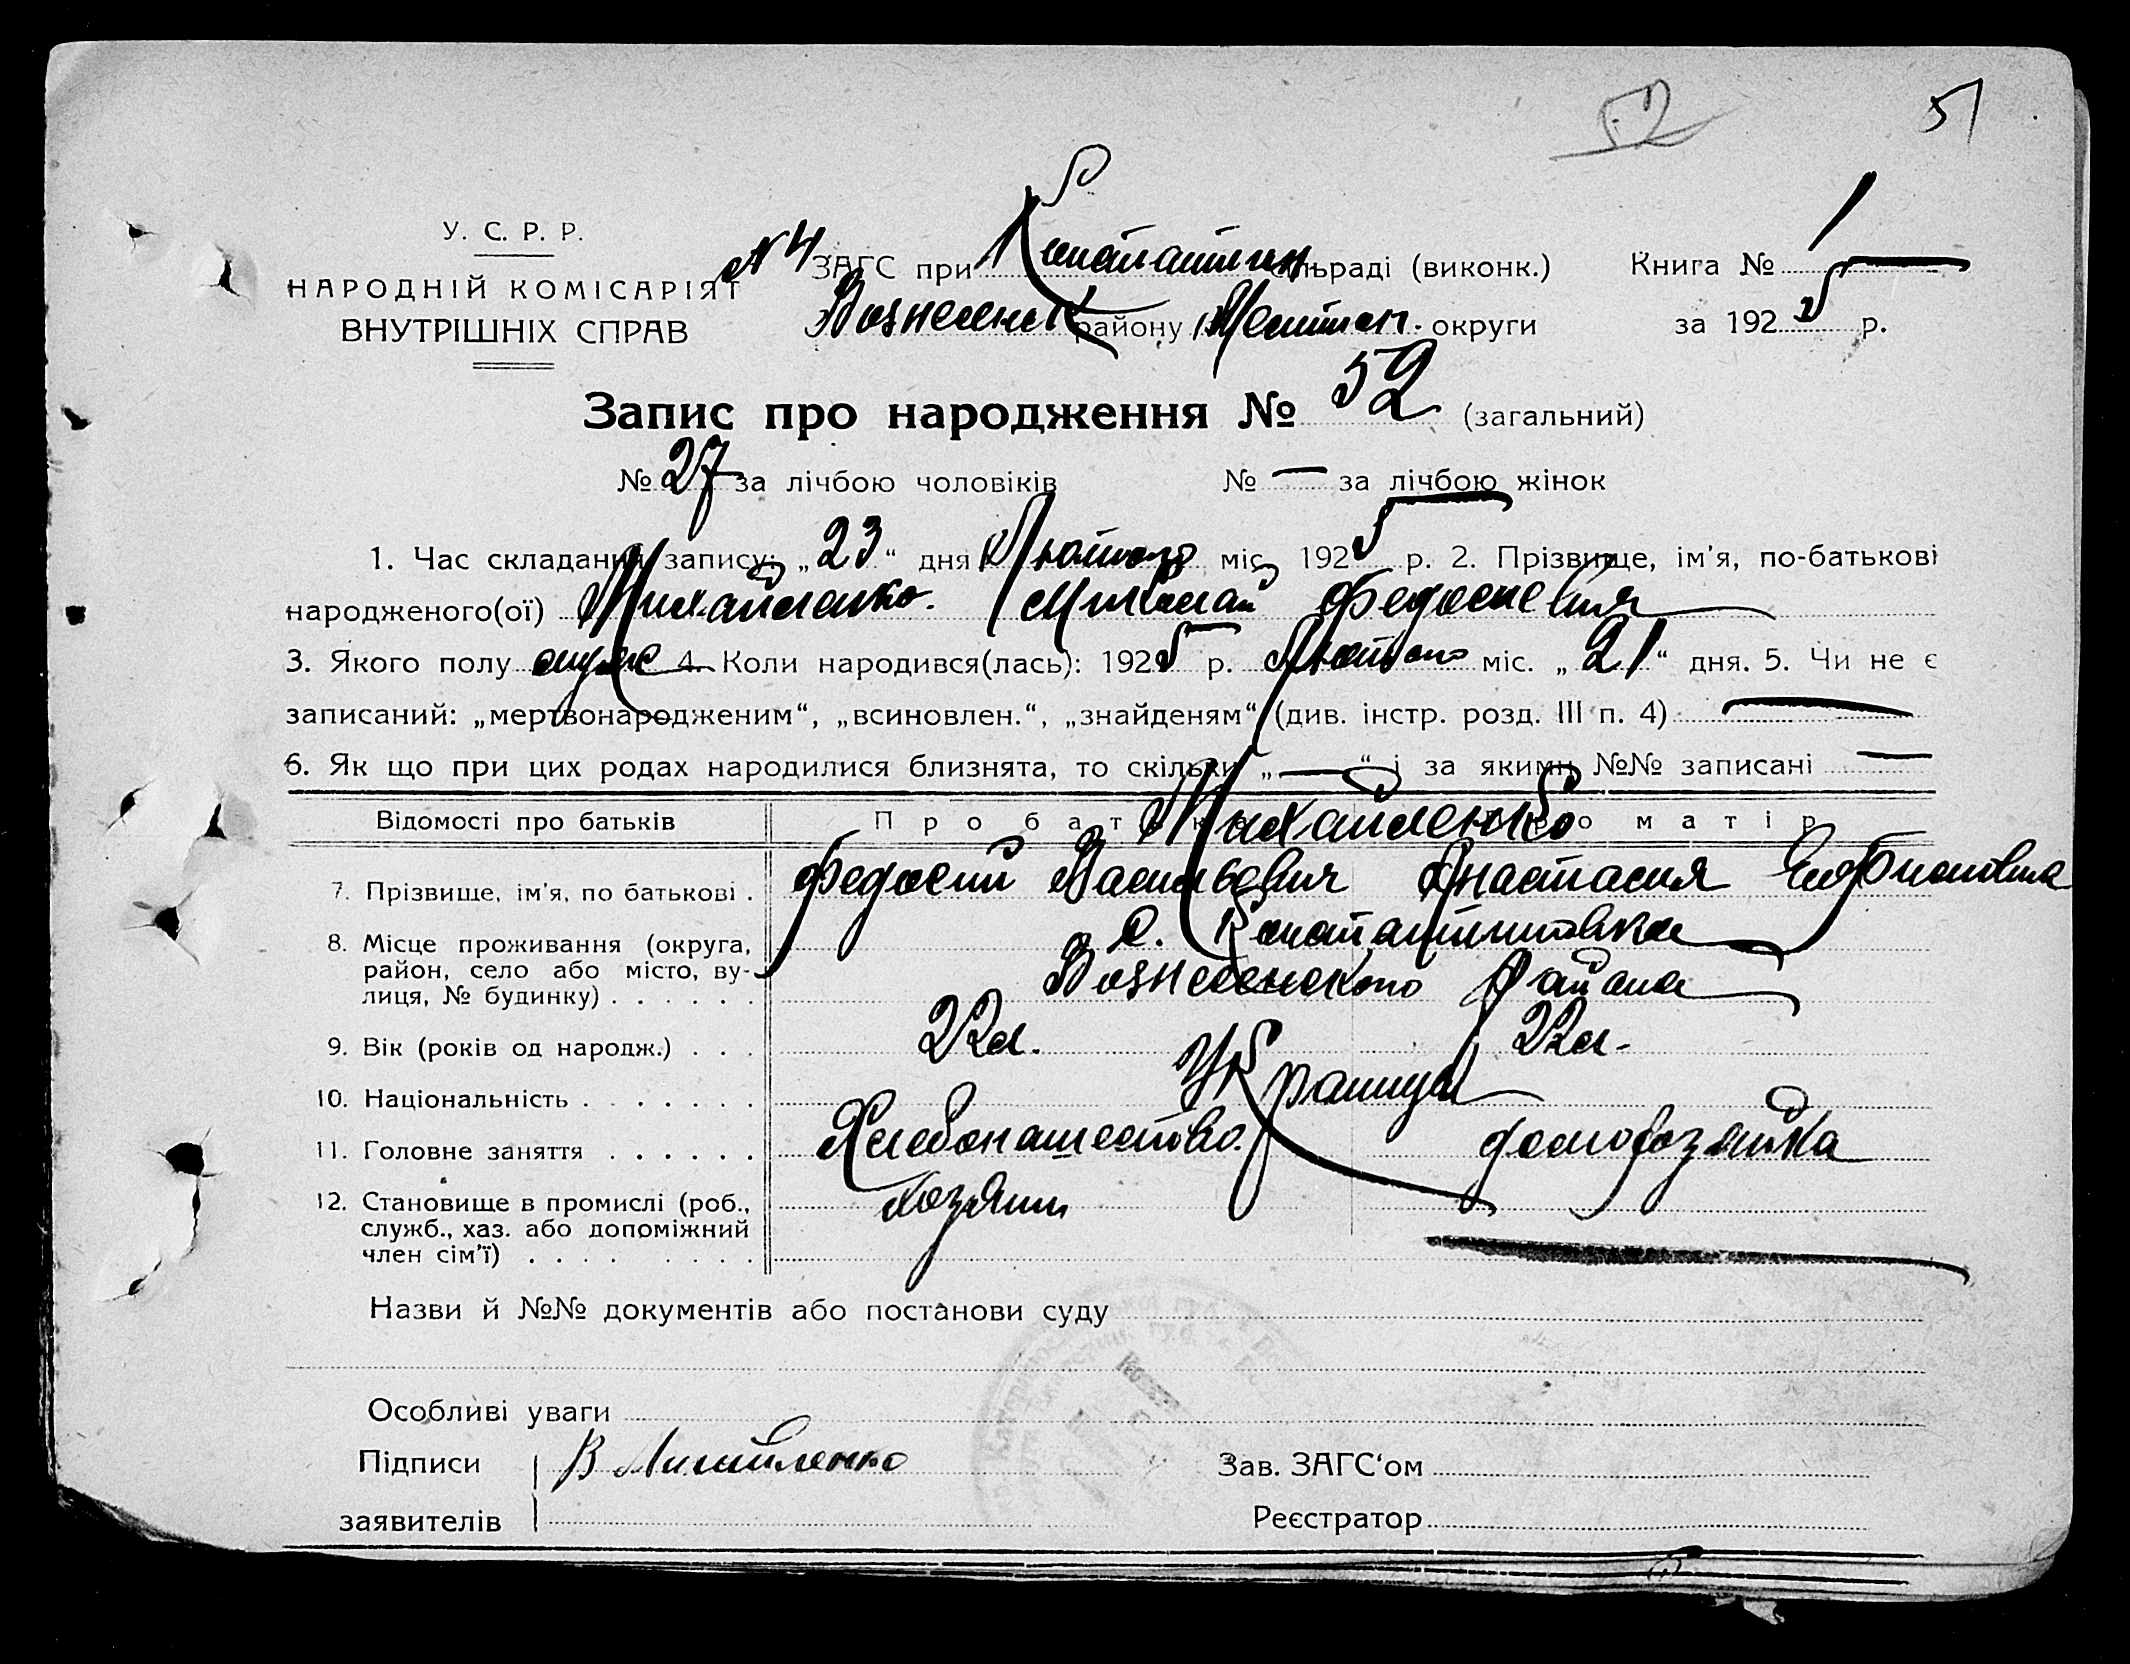 52 51
У. С. Р. Р.
НАРОДНІЙ КОМІСАРІЯТ
ВНУТРІШНІХ СПРАВ
№ 4 ЗАГС при Констаптин. сільраді (виконк.) Книга № 1
Вознесенськ району округи за 1925 р.
Запис про народження № 52 (загальний)
№ 27 за лічбою чоловіків № — за лічбою жінок
1. Час складання запису: „23“ дня Лютого міс. 1925 р. 2. Прізвище, ім'я, по-батькові
народженого(ої) Михайленко. Миколай Федосиевич
3. Якого полу муж 4. Коли народився(лась): 1925 р. Лютого міс. „21“ дня. 5. Чи не є
записаний: „мертвонародженим“, „всиновлен.“, „знайденям“ (див. інстр. розд. III п. 4) —
6. Як що при цих родах народилися близнята, то скільки „—“ і за якими №№ записані —
Відомості про батьків Про батька Про матір
Михайленко
7. Прізвище, ім'я, по батькові . Федосий Васильович Анастасия
8. Місце проживання (округа, район, село або місто, вулиця, № будинку) . . . . . . с. Константиновка
Вознесенского Района
9. Вік (років од народж.) . . . 22л. 22л.
10. Національність . . . . . . . Украинцы
11. Головне заняття . . . . . . Хлебопашество. домохозяйка
12. Становище в промислі (роб., служб., хаз. або допоміжний член сім'ї) . . . . . . . . Хозяин
Назви й №№ документів або постанови суду
Особливі уваги
Підписи В Михайленко Зав. ЗАГС'ом
заявителів Реєстратор